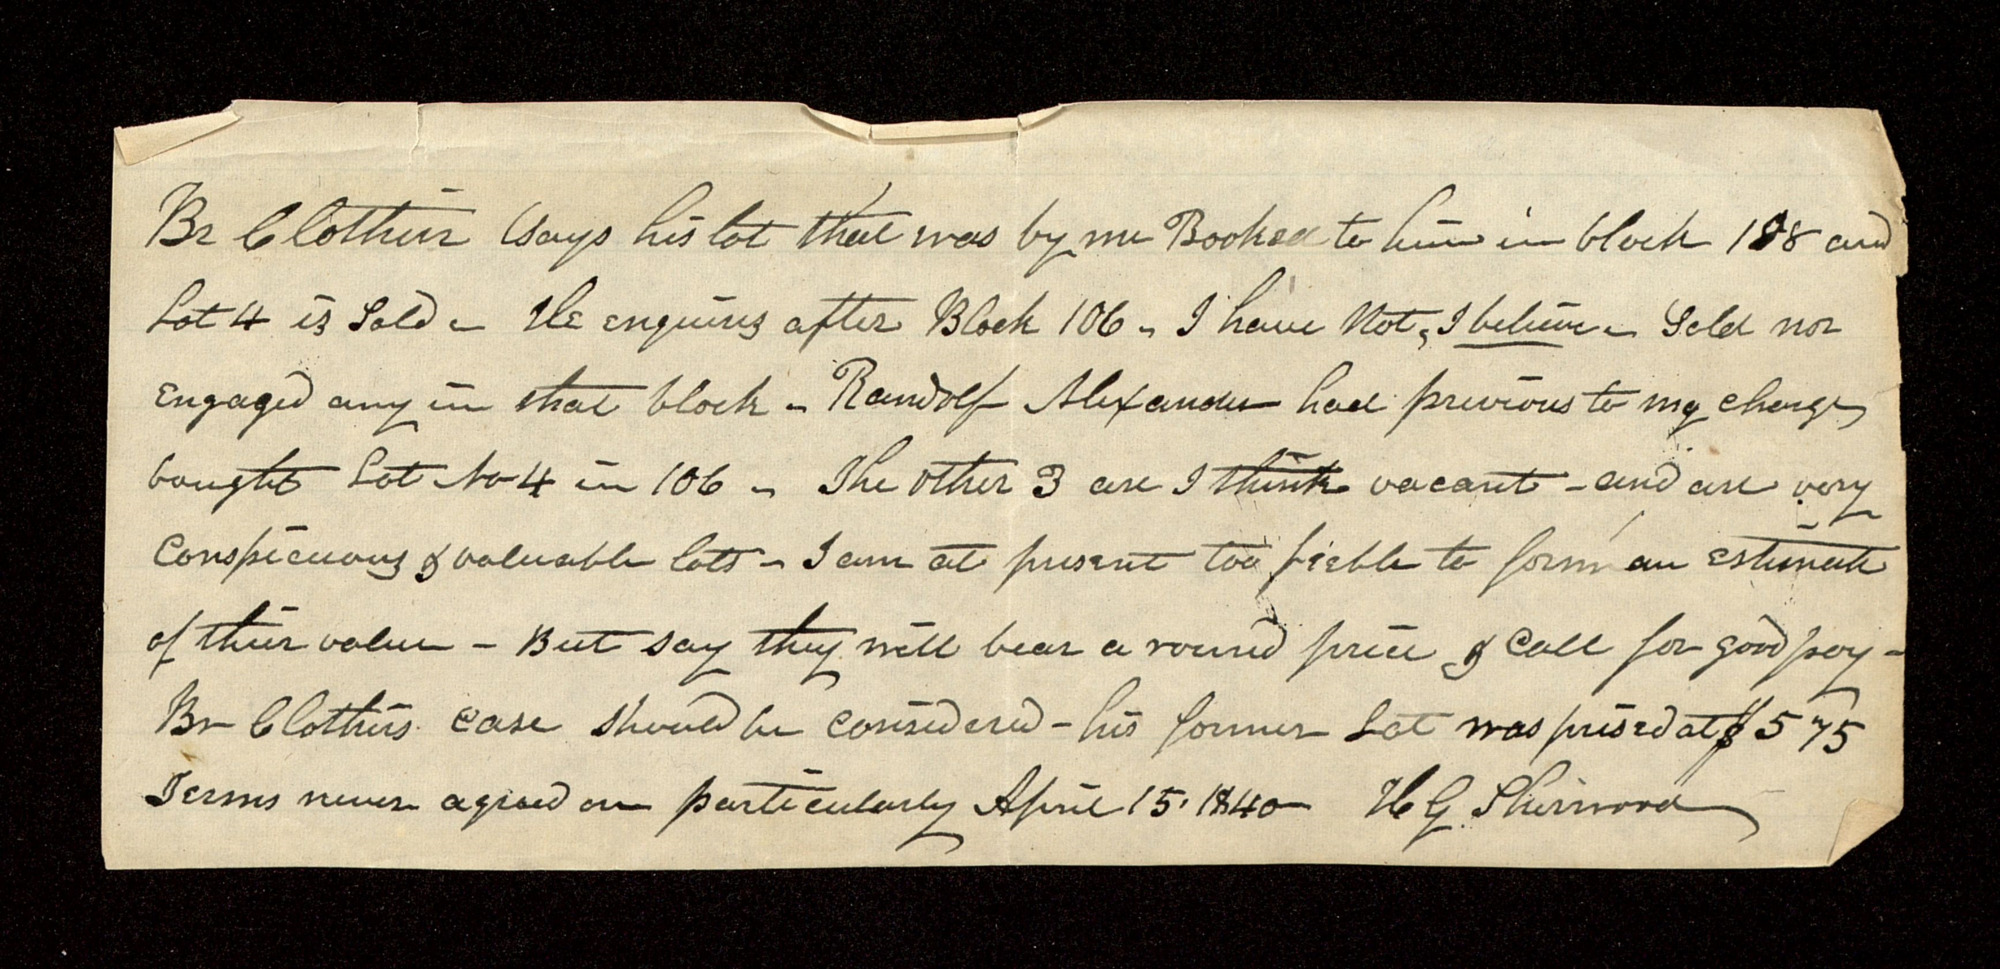 Br Clothier Says his lot that was by me Booked to him in block 188 and
Lot 4 is Sold – He enquires after Block 106 – I have Not, I believe – Sold nor
Engaged any in that block – Randolf Alexander had previous to my charge,
bought Lot No 4 in 106 – The other 3 are I think vacant – and are very
Conspicuous & valuable lots – I am at present too feeble to form an estimate
of their value – But say they will bear a round price & Call for good pay –
Br Clothiers case should be considered – his former Lot was prised at $575
Terms never agreed on particularly April 15, 1840 H G Sherwood